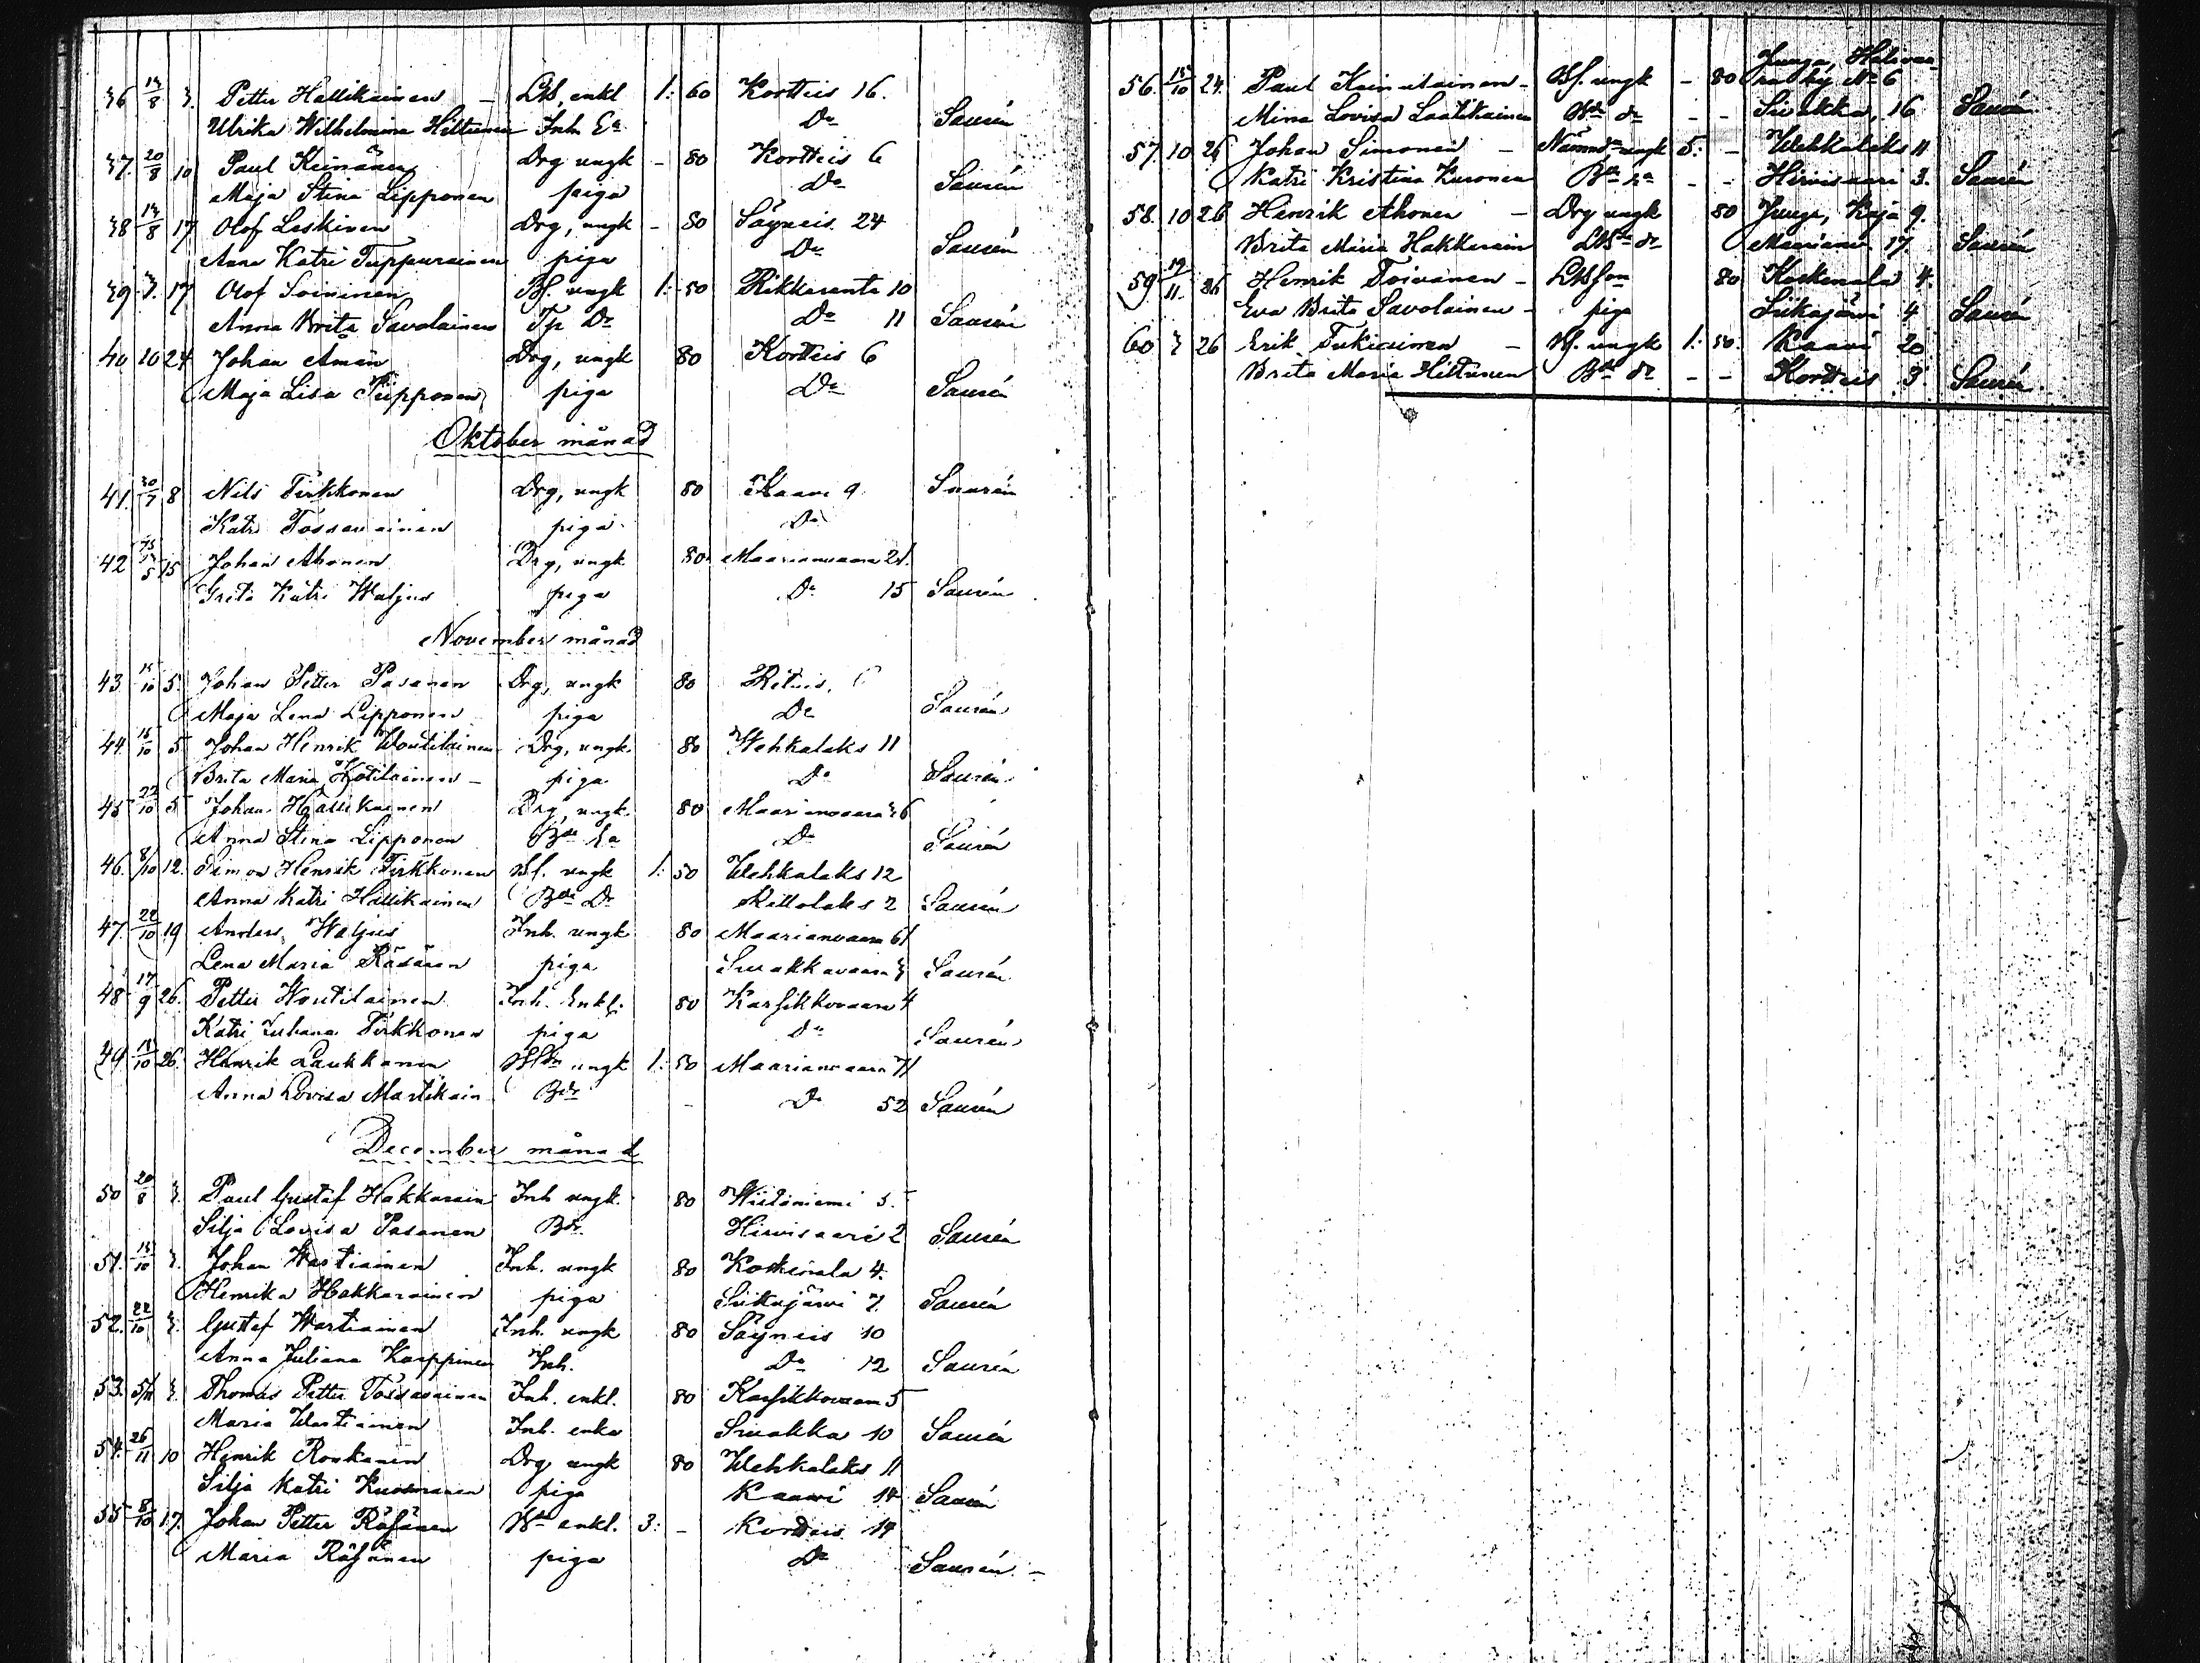 36 13/8 3. Petter Hallikainen – Lbs, enkl 1: 60 Kortteis 16.
Ulrika Wilhelmina Hiltunen Inh. Ea Do Saurén
37. 20/8 10 Paul Keinänen Drg ungk - 80 Kortteis 6
Maja Stina Lipponen piga Do Saurén
38 13/8 17 Olof Leskinen Drg, ungk - 80 Säyneis 24
Anna Katri Tuppurainen piga Do Saurén
39 3. 17 Olof Soininen Bf. ungk 1: 50 Rikkaranta 10
Anna Brita Savolainen Tp Dr Do 11 Saurén
40 20 24 Johan Aman Drg, ungk 80 Kortteis 6
Maja Lisa Piipponen piga Do Saurén
Oktober månad
41. 30/7 8 Nils Tirkkonen Drg, ungk 80 Kaavi 9 Saurén
Katri Tossavainen piga Do
42 5 15 Johan Ahonen Drg, ungk 80 Maarianvaara 21.
Greta Katri Waljus piga Do 15 Saurén
November månad
43. 15/10 5. Johan Petter Pasanen Drg, ungk 80 Retuis,
Maja Lena Lipponen piga Do Saurén
44. 16/10 5 Johan Henrik Woutilainen Drg, ungk. 80 Wehkalaks 11
Brita Maria Kotilainen – piga Do Saurén
45 22/10 5 Johan Hallikainen Drg, ungk. 80 Maarianvaara 36
Anna Stina Lipponen Bde Ea Do Saurén
46. 8/10 12. Simon Henrik Tirkkonen Bf. ungk 1: 50 Wehkalaks 12
Anna Katri Hallikainen Bde Dr Rittolaks 2 Saurén
47. 22/10 19 Anders Waljus Inh. ungk 80 Maarianvaara 61
Lena Maria Räsänen piga Siwakkavaara 3 Saurén
48 17/9 26. Petter Woutilainen Inh. Enkl. 80 Karsikkovaara 4
Katri Juliana Tirkkonen piga Do Saurén
49 18/10 26. Henrik Laukkanen ungk 1: 50 Maarianvaara 71
Anna Lovisa Martikain Bdr - Do 52 Saurén
December månad
50 20/8 3. Paul Gustaf Hakkarain Inh ungk. 80 Wiitaniemi 5.
Silja Lovisa Pasanen Bdr. Hirvisaari 2 Saurén
51. 15/10 3. Johan Wastiainen Inh. ungk 80 Koskenala 4.
Henrika Hakkarainen piga Siikajärvi 7. Saurén
52. 22/10 3. Gustaf Wartiainen Inh. ungk 80 Säyneis 10
Anna Juliana Korppinen Inh. Do 12 Saurén
53. 5/11 3. Thomas Petter Tossavainen Inh. enkl. 80 Karsikkovaara 5
Maria Wartiainen Inh. enka Siwakka 10 Saurén
54. 26/11 10 Henrik Ronkanen Drg ungk 80 Wehkalaks 11
Silja Katri Kuosmanen piga Kaavi 14 Saurén
55 8/10 17. Johan Petter Räsänen enkl. 3: - Kortteis 14
Maria Räsänen piga Do Saurén –
56. 15/10 24. Paul Kainulainen – Bf. ungk - 80 Junga, Halivaa-
ra by No 6
Mina Lovisa Laatikainen Bde dr - - Siwakka, 16 Saurén
57. 10 26 Johan Simonen – Nämnd ungk 5: - Wehkalaks 11
Katri Kristina Kuronen Bde - - Hirvisaari 3. Saurén
58. 10 26 Henrik Ahonen – Drg ungk 80 Juuga, Kaja 9.
Brita Maria Hakkarain Lbs dr Maarianv 17. Saurén
59. 19/11. 26 Henrik Toivanen – Lbs son 80 Koskenala 4.
Eva Brita Savolainen – piga Siikajärvi 4 Saurén
60 3 26 Erik Tukiainen – Bf. ungk 1: 50. Kaavi 20
Brita Maria Hiltunen Bde dr - - Kortteis 3 Saurén